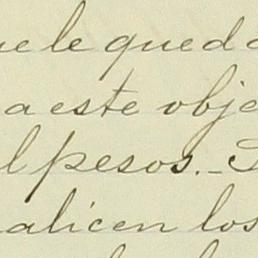 ue le queda
a este obje
l pesos.-
alicen los